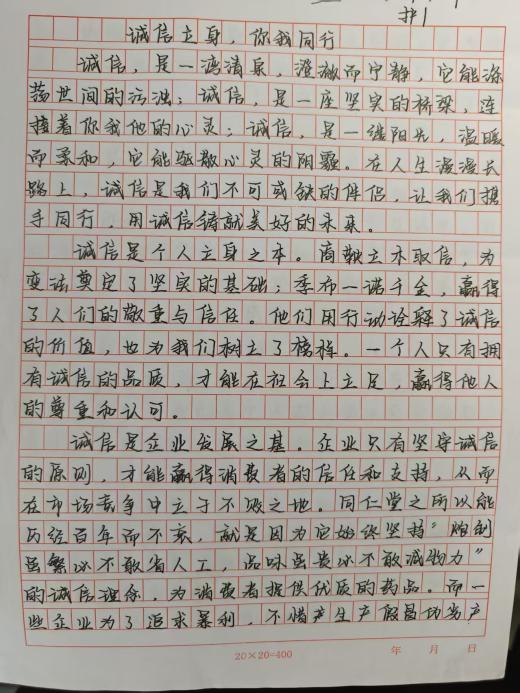 护
诚信立身，你我同行
诚信，是一湾清泉，澄澈而宁静，它能涤
荡世间的污浊；诚信，是一座坚实的桥梁，连
接着你我他的心灵；诚信，是一缕阳光，温暖
而柔和，它能驱散心灵的阴霾。在人生漫漫长
路上，诚信是我们不可或缺的伴侣，让我们携
手同行，用诚信铸就美好的未来。
诚信是个人立身之本。商鞅立木取信，为
变法奠定了坚实的基础；季布一诺千金，赢得
了人们的敬重与信任。他们用行动诠释了诚信
的价值，也为我们树立了榜样。一个人只有拥
有诚信的品质，才能在社会上立足，赢得他人
的尊重和认可。
诚信是企业发展之基。企业只有坚守诚信
的原则，才能赢得消费者的信任和支持，从而
在市场竞争中立于不败之地。同仁堂之所以能
历经百年而不衰，就是因为它始终坚持“炮制
虽繁必不敢省人工，品味虽贵必不敢减物力”
的诚信理念，为消费者提供优质的药品。而一
些企业为了追求暴利，不惜生产假冒伪劣产
20×20=400 年 月 日